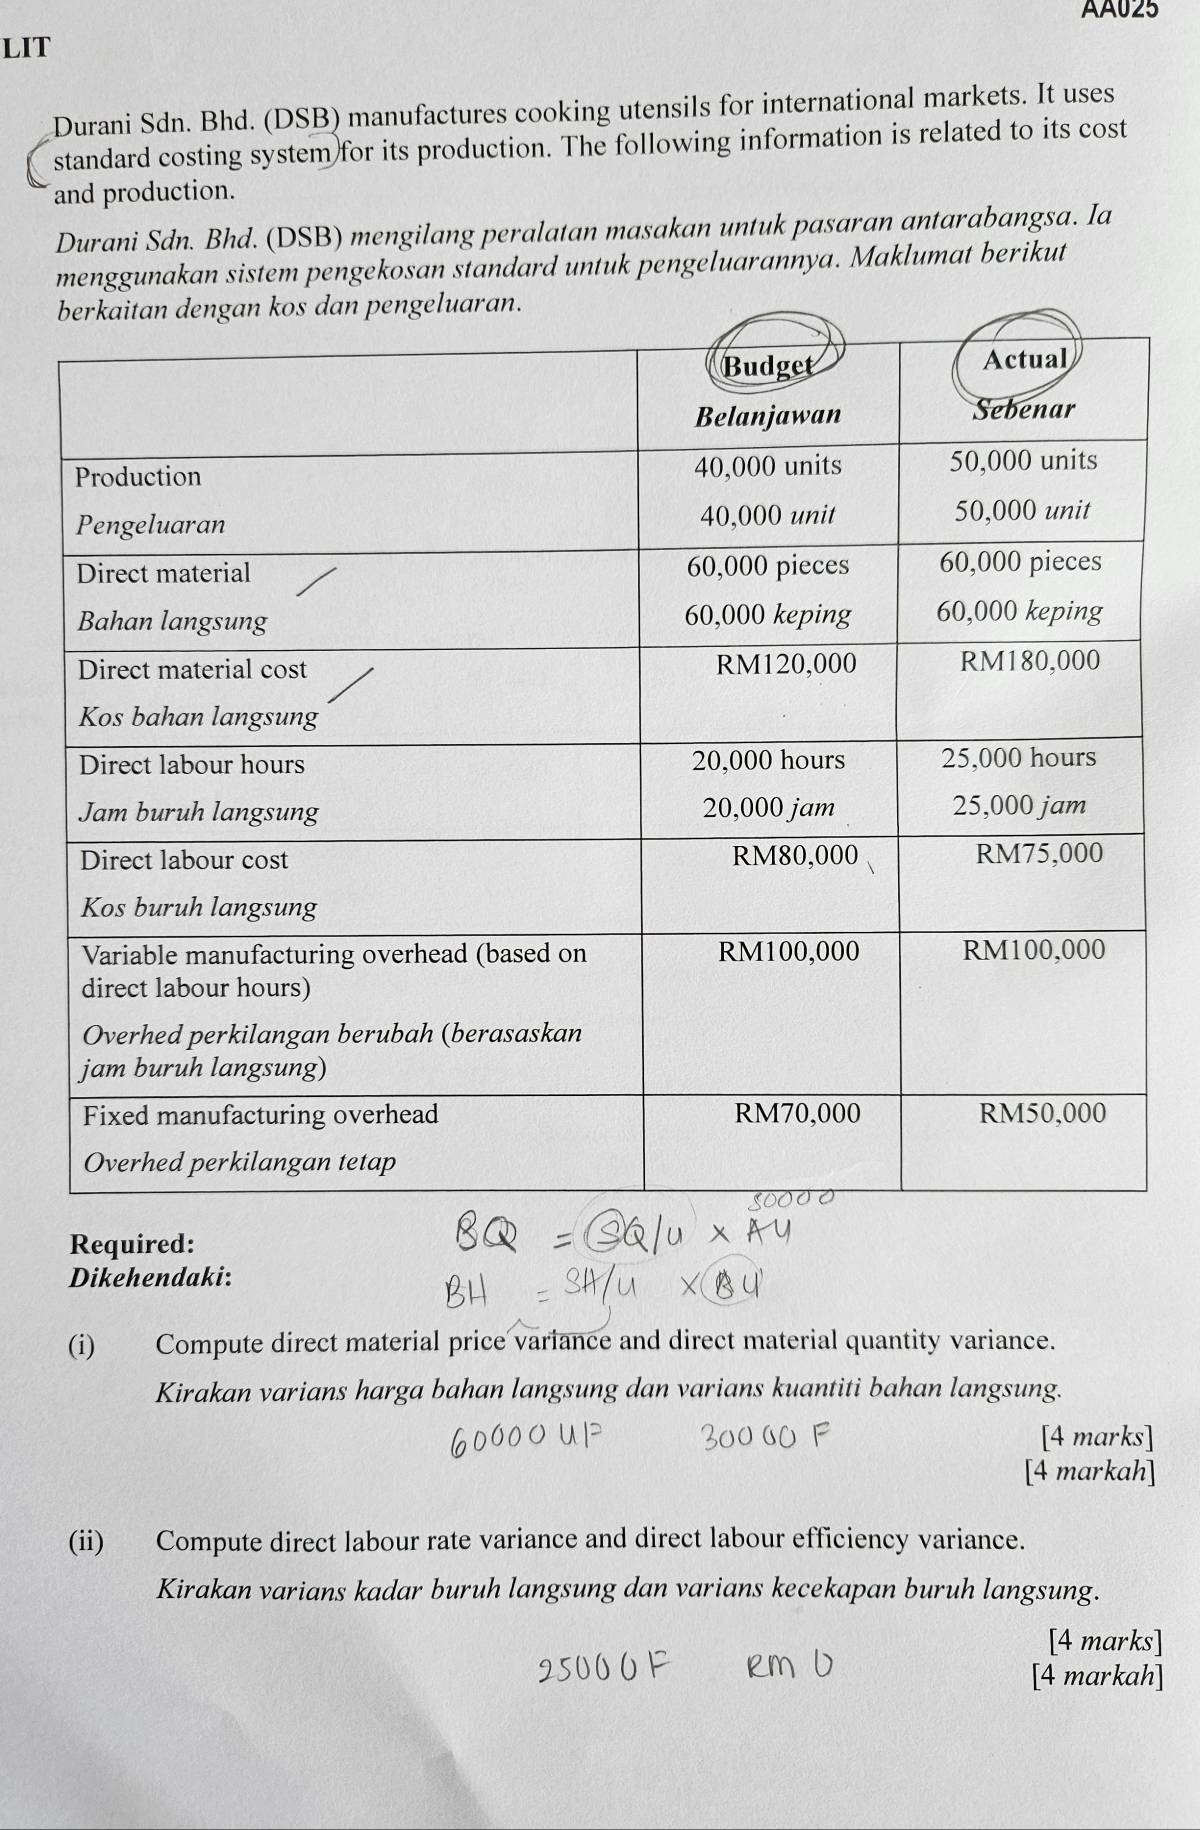 AA025
LIT
Durani Sdn. Bhd. (DSB) manufactures cooking utensils for international markets. It uses
standard costing system for its production. The following information is related to its cost
and production.
Durani Sdn. Bhd. (DSB) mengilang peralatan masakan untuk pasaran antarabangsa. Ia
menggunakan sistem pengekosan standard untuk pengeluarannya. Maklumat berikut
berkaitan dengan kos dan pengeluaran.
Budget Actual
Belanjawan Sebenar
Production 40,000 units 50,000 units
Pengeluaran 40,000 unit 50,000 unit
Direct material 60,000 pieces 60,000 pieces
Bahan langsung 60,000 keping 60,000 keping
Direct material cost RM120,000 RM180,000
Kos bahan langsung
Direct labour hours 20,000 hours 25,000 hours
Jam buruh langsung 20,000 jam 25,000 jam
Direct labour cost RM80,000 RM75,000
Kos buruh langsung
Variable manufacturing overhead (based on RM100,000 RM100,000
direct labour hours)
Overhed perkilangan berubah (berasaskan
jam buruh langsung)
Fixed manufacturing overhead RM70,000 RM50,000
Overhed perkilangan tetap
50000
Required: BQ = SQ/u × AU
Dikehendaki:
BH = SH/u ×
(i) Compute direct material price variance and direct material quantity variance.
Kirakan varians harga bahan langsung dan varians kuantiti bahan langsung.
60000 UF 30000 F [4 marks]
[4 markah]
(ii) Compute direct labour rate variance and direct labour efficiency variance.
Kirakan varians kadar buruh langsung dan varians kecekapan buruh langsung.
[4 marks]
25000 F RM 0 [4 markah]